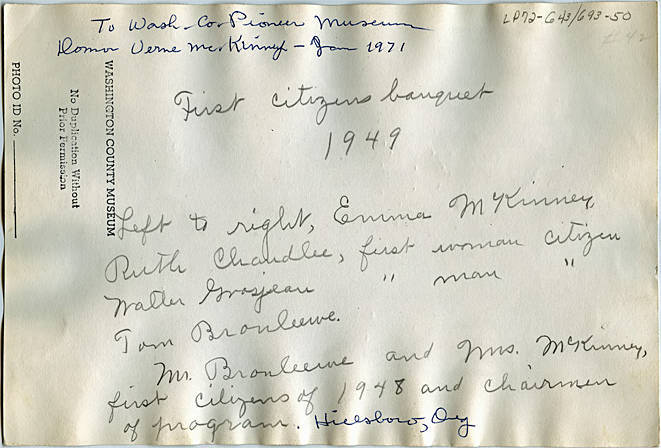 To Wash. Co. Pioneer Museum
Donor Verne McKinney - Jan 1971
LP72-643/693-50
#42
WASHINGTON COUNTY MUSEUM
No Duplication Without
Prior Permission
PHOTO ID No.
First citizens banquet
1949
Left to right, Emma McKinney,
Ruth Chandlee, first woman citizen
Walter Grosjean " man "
Tom Bronleewe.
Mr. Bronleewe and Mrs. McKinney,
first citizens of 1948 and chairmen
of program. Hillsboro, Org